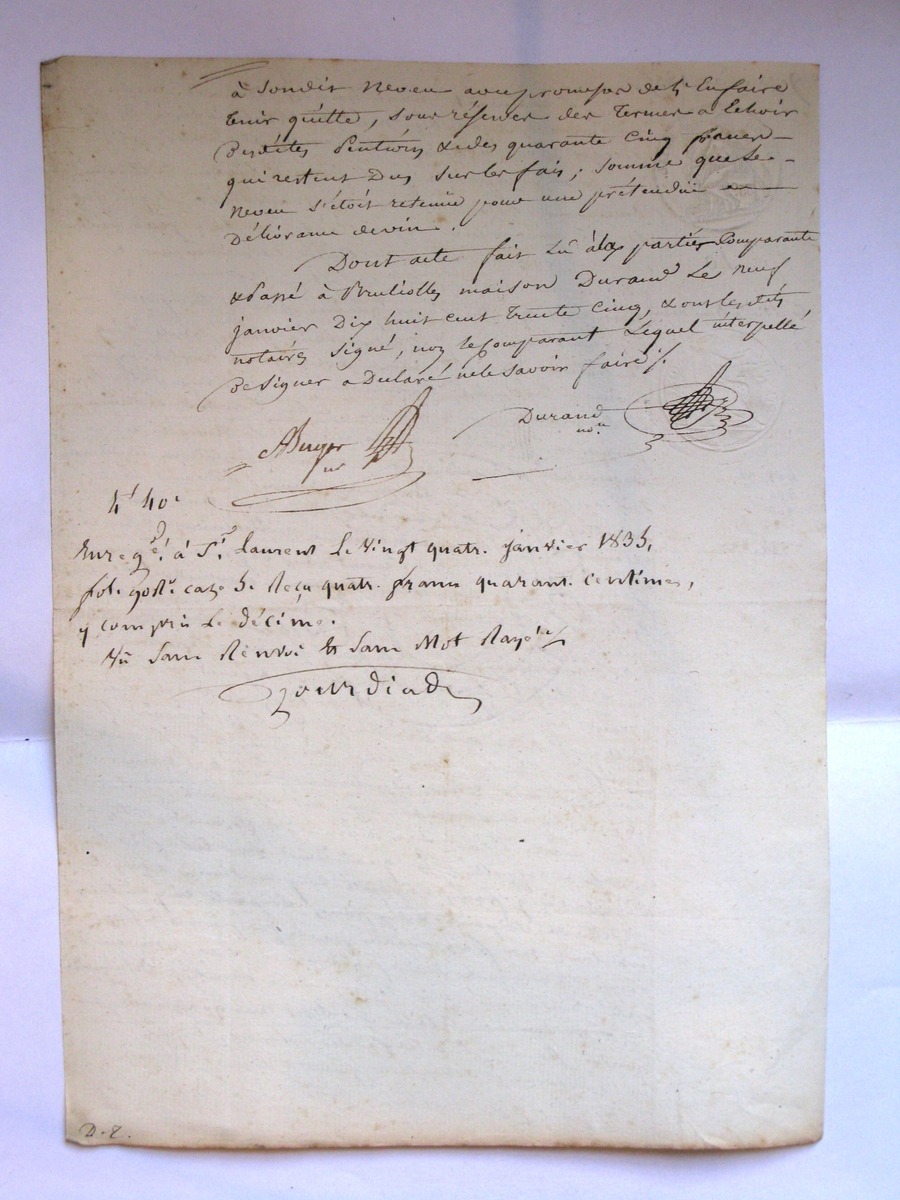 à sondit neveu avec promesse de l'en faire
tenir quitte, sous réserve des termes a Echoir
desdites pentions & des quarante cinq francs
qui restent dus sur les fais, somme que le
neveu s'étoit retenüe pour une prétendüe
délivrance de vin.
Dont acte fait Lû à la partie Comparante
& Passé à Brulioles maison Durand Le neuf
janvier Dix huit cent trente cinq, & ont les dits
notaires signé, non le Comparant Lequel interpellé
de signer a Declaré ne le savoir faire /.
Durand
nore
not
4f 40c
Enregé. à St. Laurent le vingt quatr. janvier 1835,
fol. case 5. Reçu quatr. francs quarant. centimes,
y compris le décime.
Vû Sans Renvoi & Sans Mot Rayé